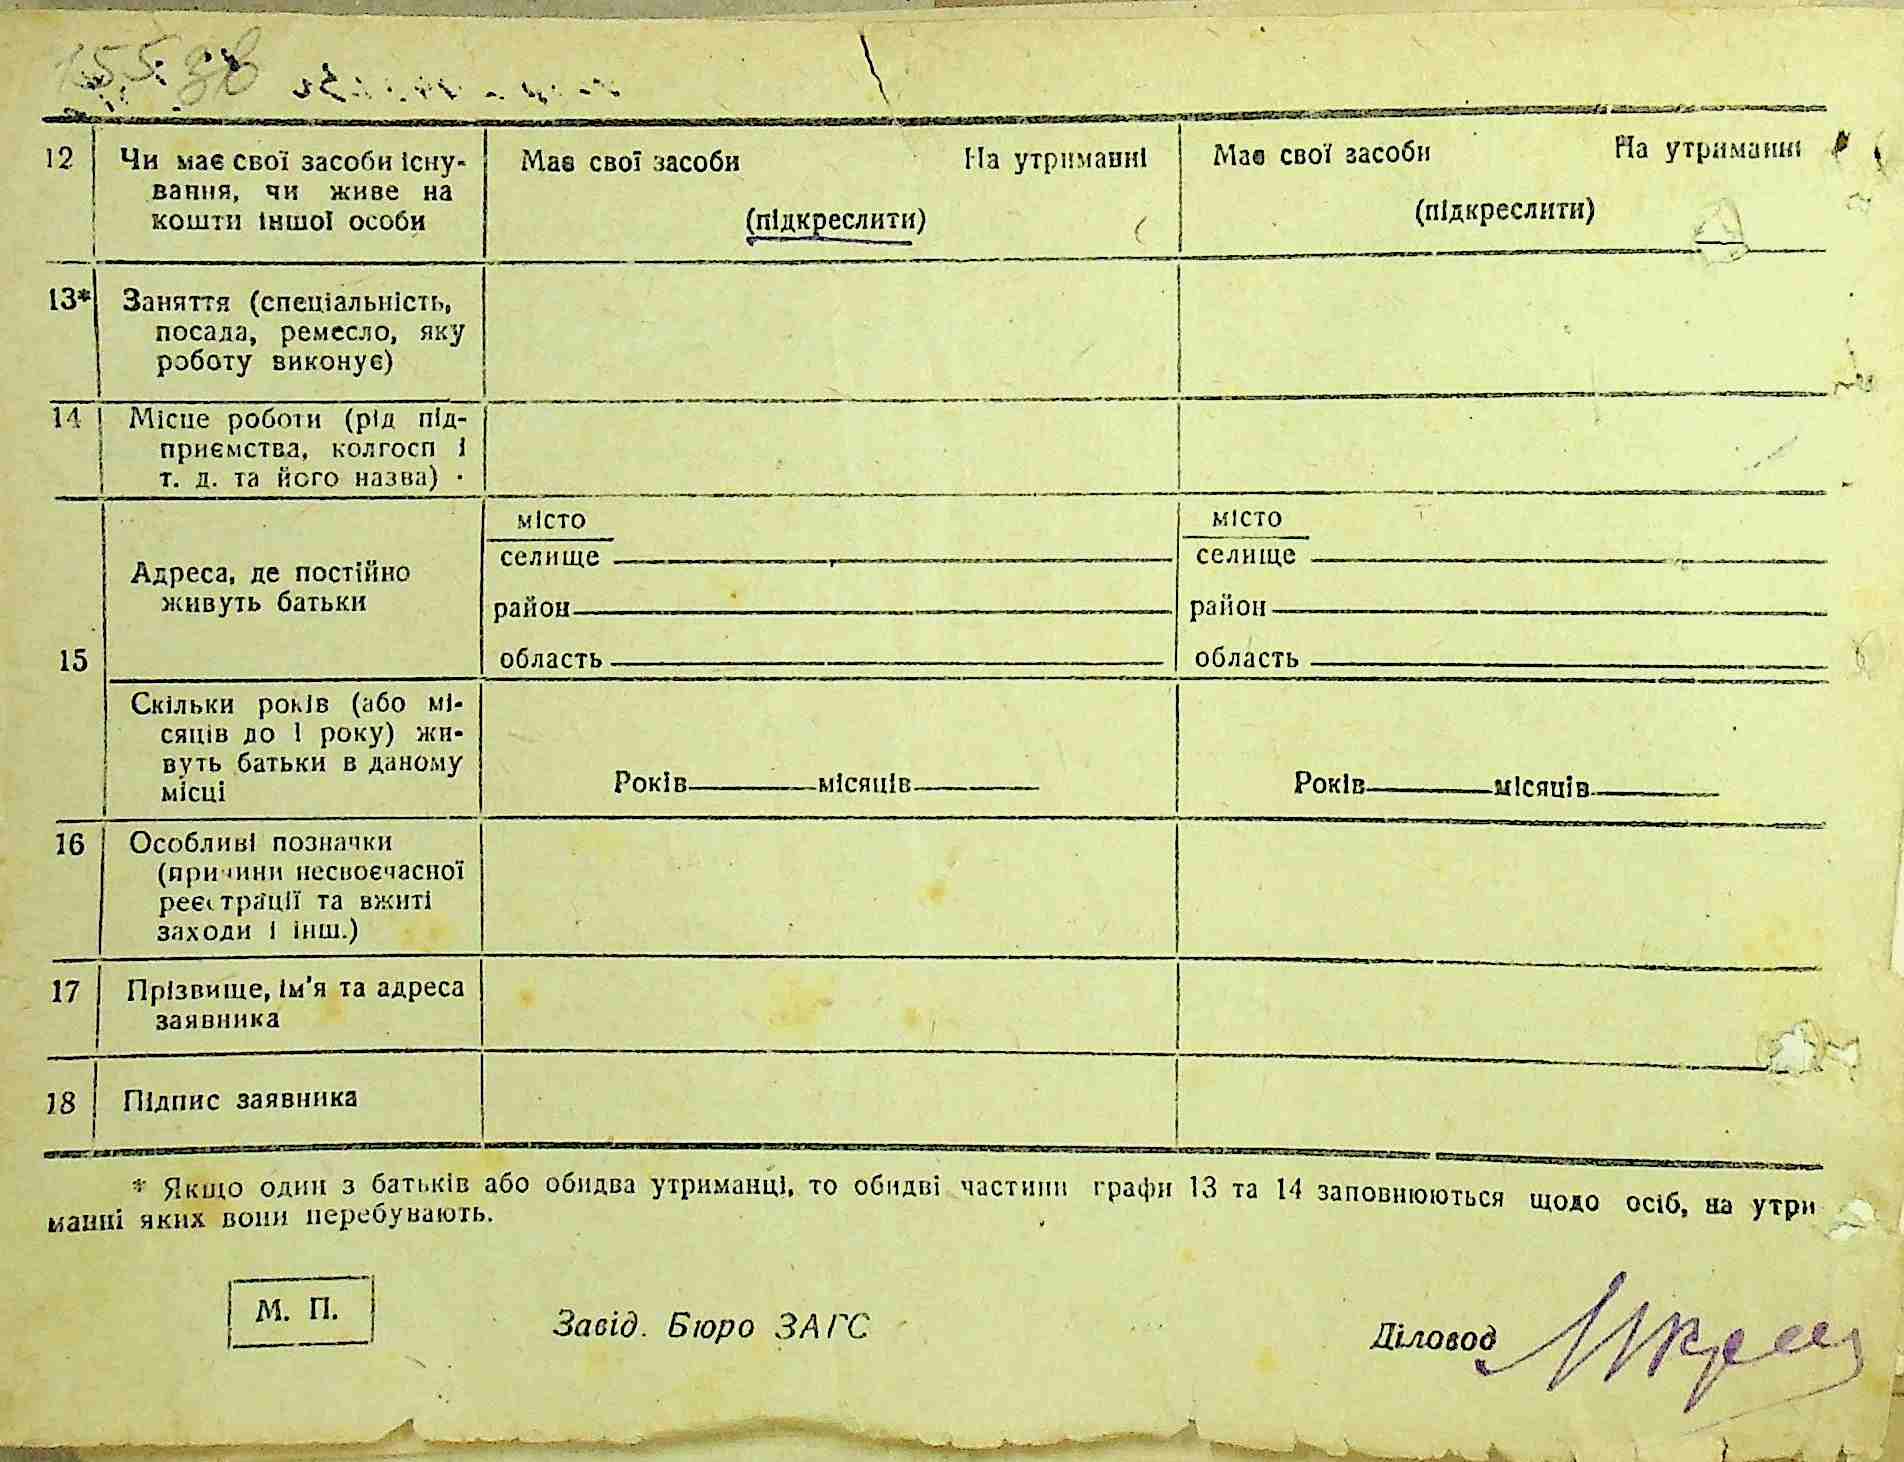 12 Чи має свої засоби існу- Має свої засоби На утриманні Має свої засоби На утриманні
вання, чи живе на
кошти іншої особи (підкреслити) (підкреслити)
13* Заняття (спеціальність,
посада, ремесло, яку
роботу виконує)
14 Місце роботи (рід під-
приємства, колгосп і
т. д. та його назва)
15
Адреса, де постійно
живуть батьки
місто місто
селище селище
район район
область область
Скільки років (або мі-
сяців до 1 року) жи-
вуть батьки в даному
місці
Років місяців Років місяців
16 Особливі позначки
(причини несвоєчасної
реєстрації та вжиті
заходи і інш.)
17 Прізвище, ім'я та адреса
заявника
18 Підпис заявника
* Якщо один з батьків або обидва утриманці, то обидві частини графи 13 та 14 заповнюються щодо осіб, на утри
манні яких вони перебувають.
М. П. Завід. Бюро ЗАГС Діловод